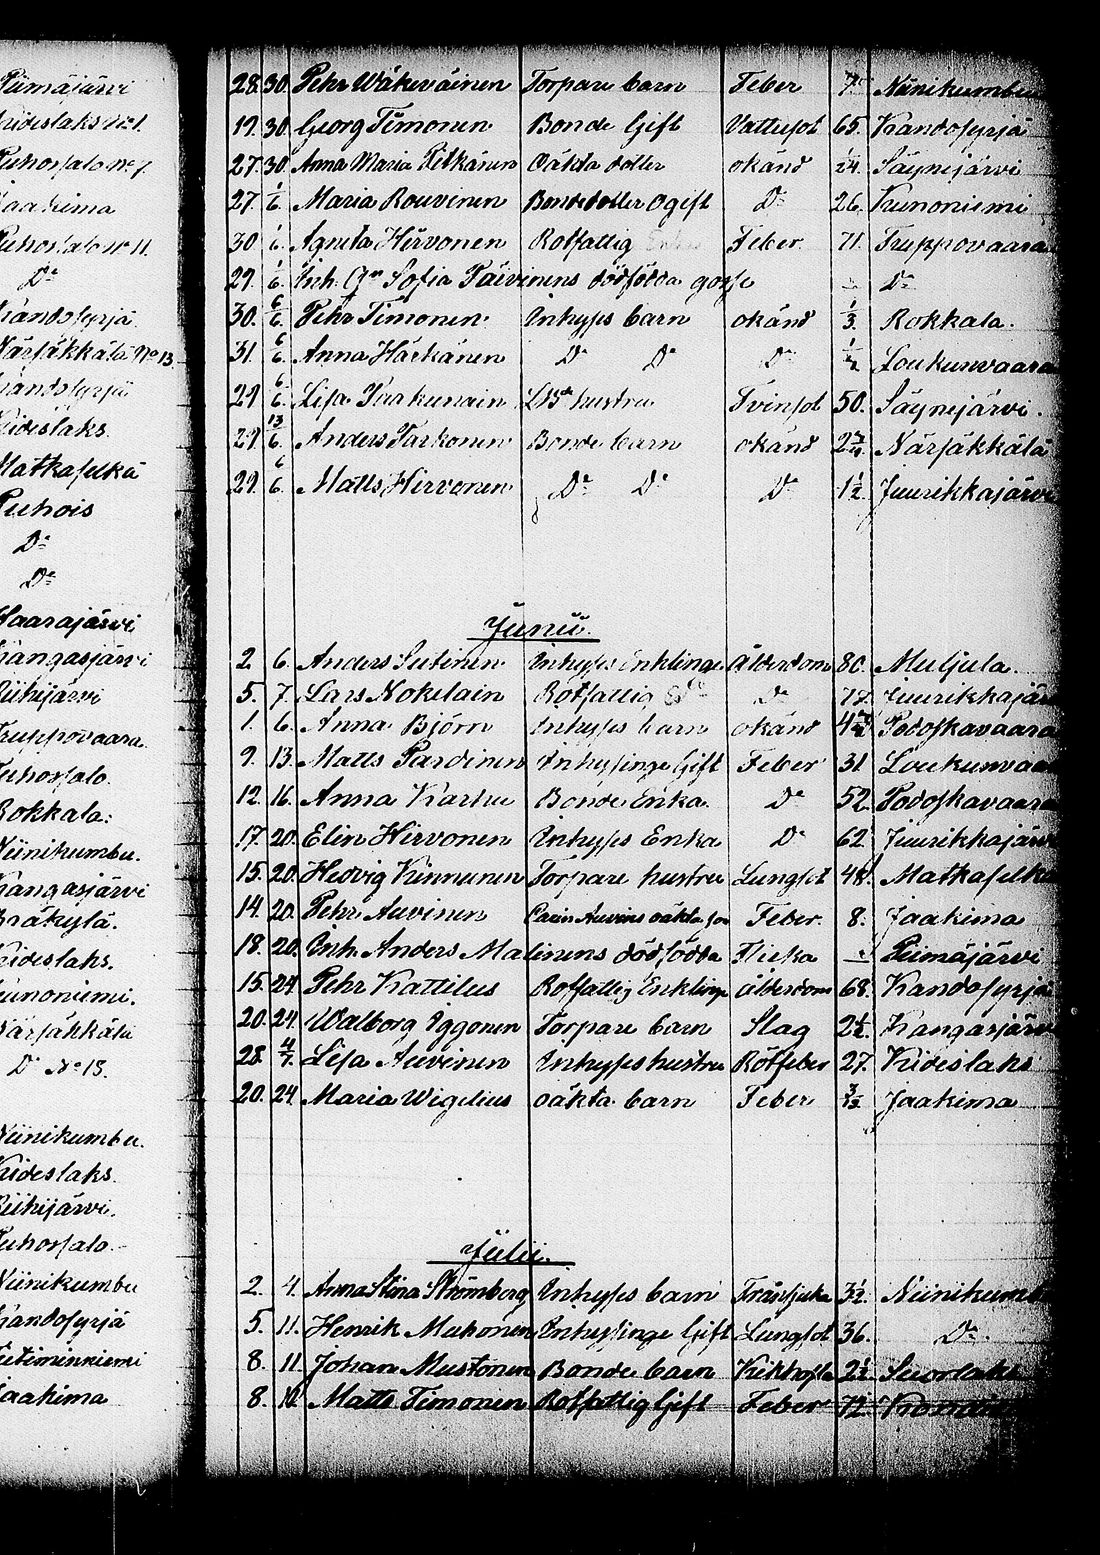 Piimäjärvi
Kideslaks No 1.
Puhossalo No 7.
Jaakima
Puhossalo No 11.
Do
Kandosyrjä
Närsäkkälä No 13.
Kandosyrjä
Kideslaks.
Matkaselkä
Puhois
Do
Do
Haarajärvi
Kangasjärvi
Riihijärvi
Truppovaara.
Puhossalo.
Rokkala.
Niinikumbu.
Kangasjärvi
Kideslaks.
Kunoniemi.
Närsäkkälä
Do No 18.
Niinikumbu.
Kideslaks.
Riihijärvi.
Puhossalo.
Niinikumbu
Kandosyrjä
Jaakima
28. 30. Pehr Wäkeväinen Torpare barn Feber 7 Niinikumbu
19. 30. Georg Timonen Bonde Gift Vattusot 65. Kandosyrjä
27. 30. Anna Maria Pitkänen Oäkta dotter okänd 1/24. Säynejärvi
27. 1/6. Maria Rouvinen Bondedotter Ogift Do 26. Kunoniemi
30 1/6. Agneta Hirvonen Rotfattig Enka Feber 71. Truppovaara
29. 1/6. Inh. Gn Sofia Päivinens dödfödda gosse Do
30. 6/6. Pehr Timonen Inhyses barn okänd 1/3. Rokkala.
31. 6/6. Anna Härkänen Do Do Do Loukunvaara
29 6/6. Lisa Paakunain hustru Tvinsot 50. Säynejärvi.
29. 13/6. Anders Parkonen Bonde barn okänd 2 3/4. Närsäkkälä
29. 6/6. Matts Hirvonen Do Do Do 1 1/2 Juurikkajärvi
Junii.
2. 6. Anders Sutinen Inhyses Enkling Ålderdom 80. Muljula.
5. 7. Lars Nokelain Rotfattig Do Do 77. Juurikkajär
1. 6. Anna Björn Inhyses barn okänd Podoskavaara
9. 13. Matts Pardinen Inhysinge Gift Feber 31 Loukunvaa
12. 16. Anna Karhu Bonde Enka. Do 52. Podoskavaara
17. 20. Elin Hirvonen Inhyses Enka Do 62. Juurikkajärvi
15. 20. Hedvig Kinnunen Torpare hustru Lungsot 48. Matkaselkä
14. 20. Pehr Auvinen Carin Auvins oäkta son Feber. 8. Jaakima
18. 20. Inh. Anders Malinens dödfödda Flicka Piimäjärvi
15. 24. Pehr Kattilus Rotfattig Enkling ålderdom 68. Kandosyrjä
20. 24. Walborg Iggonen Torpare barn Slag 2 1/2. Kangasjärvi
28. 4/7. Lisa Auvinen Inhyses hustru Rötfeber 27. Kideslaks
20. 24. Maria Wigelius oäkta barn Feber 3/12 Jaakima
Julii.
2. 4. Anna Stina Strömberg Inhyses barn Fråssjuka 3 1/2. Niinikumbu
5. 11. Henrik Mukonen Inhysinge Gift Lungsot 36. Do.
8. 11. Johan Mustonen Bonde barn Kikhosta 2 1/2 Suorlaks
8. 10. Matts Timonen Rotfattig Gift Feber 72